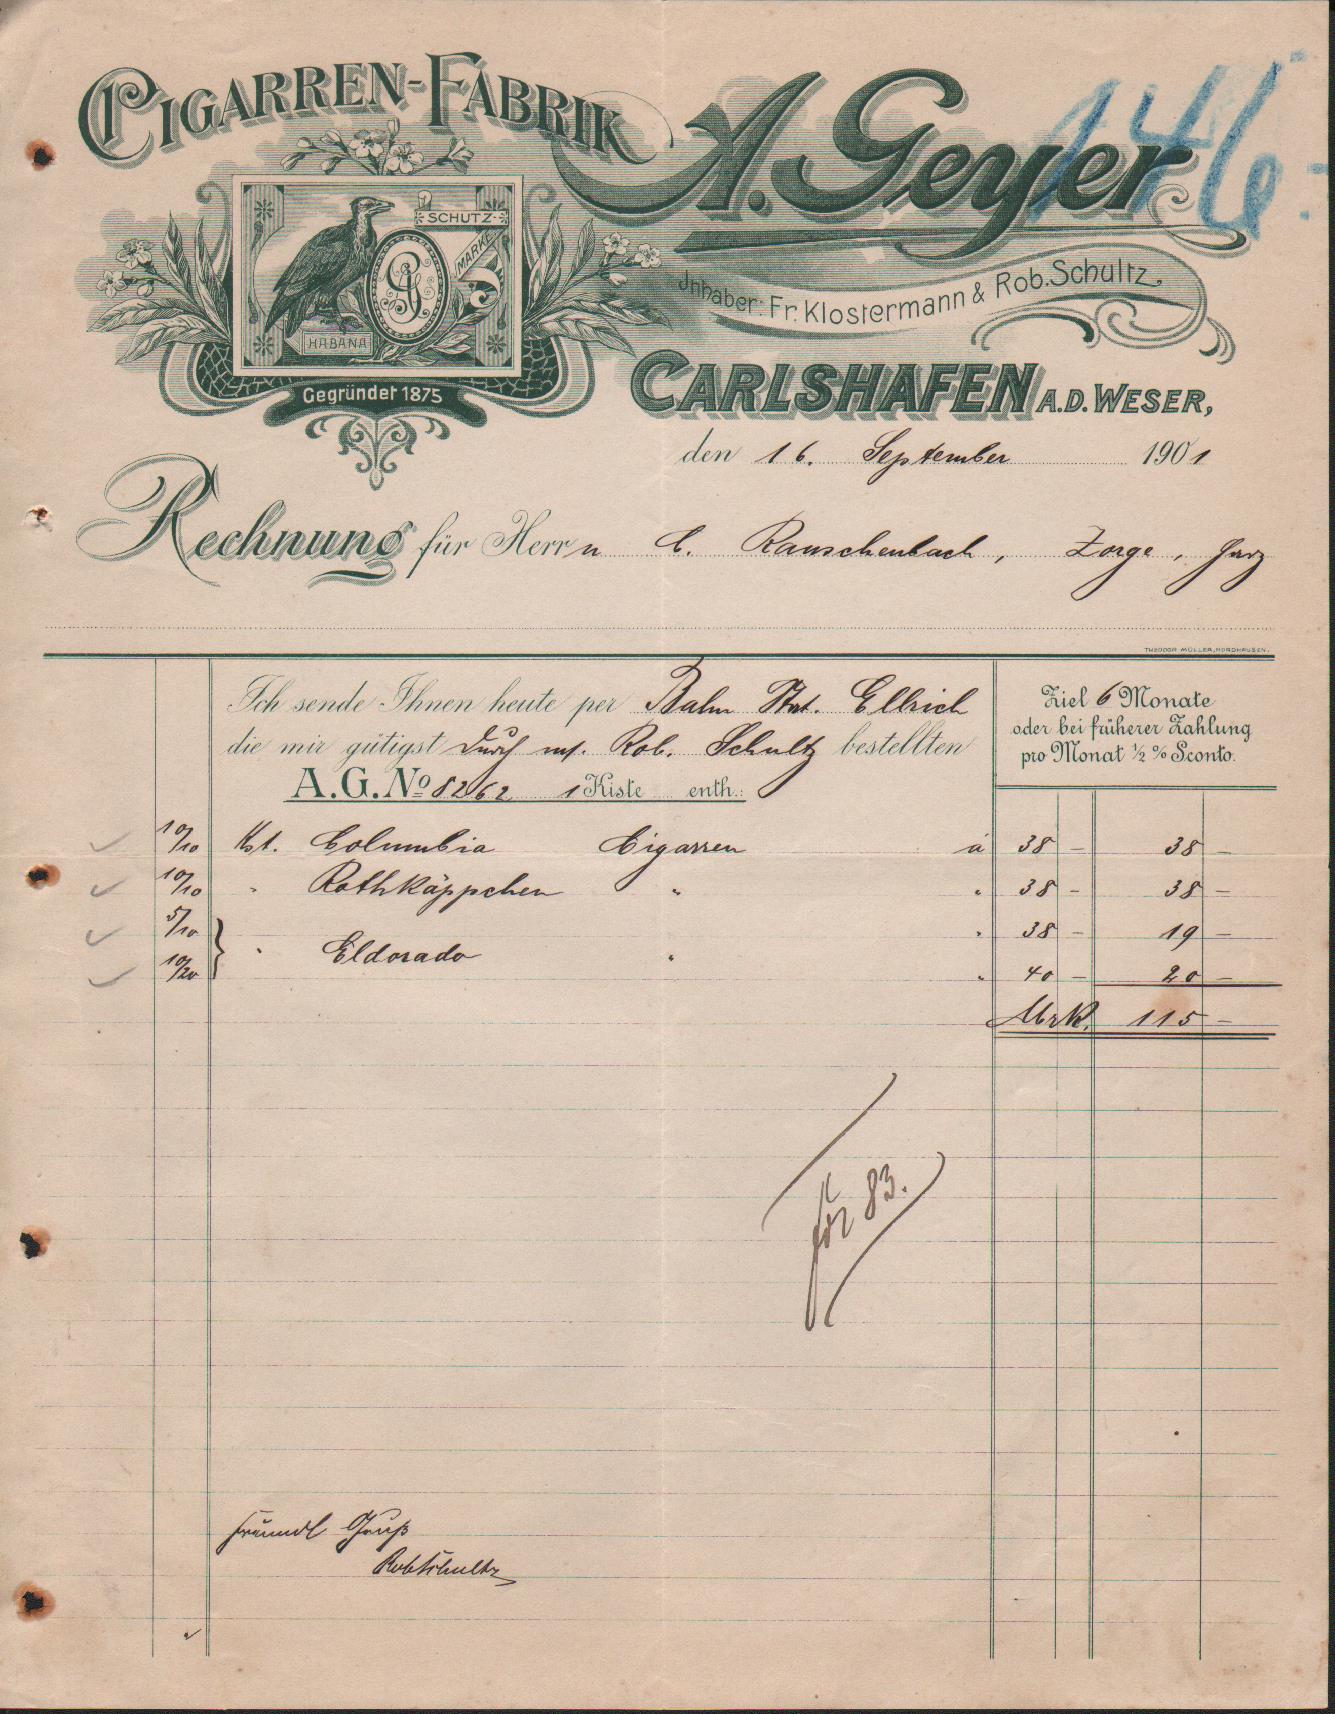 Cigarren-Fabrik
A. Geyer
146
SCHUTZ-
MARKE
HABANA
Gegründet 1875
Jnhaber: Fr. Klostermann & Rob. Schultz.
Carlshafen A.D. Weser,
den 16. September 1901
Rechnung für Herrn C. Rauschenbach, Zorge, Harz
THEODOR MÜLLER, NORDHAUSEN.
Ich sende Ihnen heute per Bahn Stat. Ellrich
die mir gütigst durch m. Rob. Schultz bestellten
A.G. No 8262 1 Kiste enth.:
Ziel 6 Monate
oder bei früherer Zahlung
pro Monat ½ % Sconto.
10/10 Kst. Columbia Cigarren à 38 – 38 –
10/10 " Rothkäppchen " " 38 – 38 –
5/10 " 38 – 19 –
" Eldorado "
10/20 " 40 – 20 –
Mrk. 115 –
83.
freundl Gruß
Rob Schultz